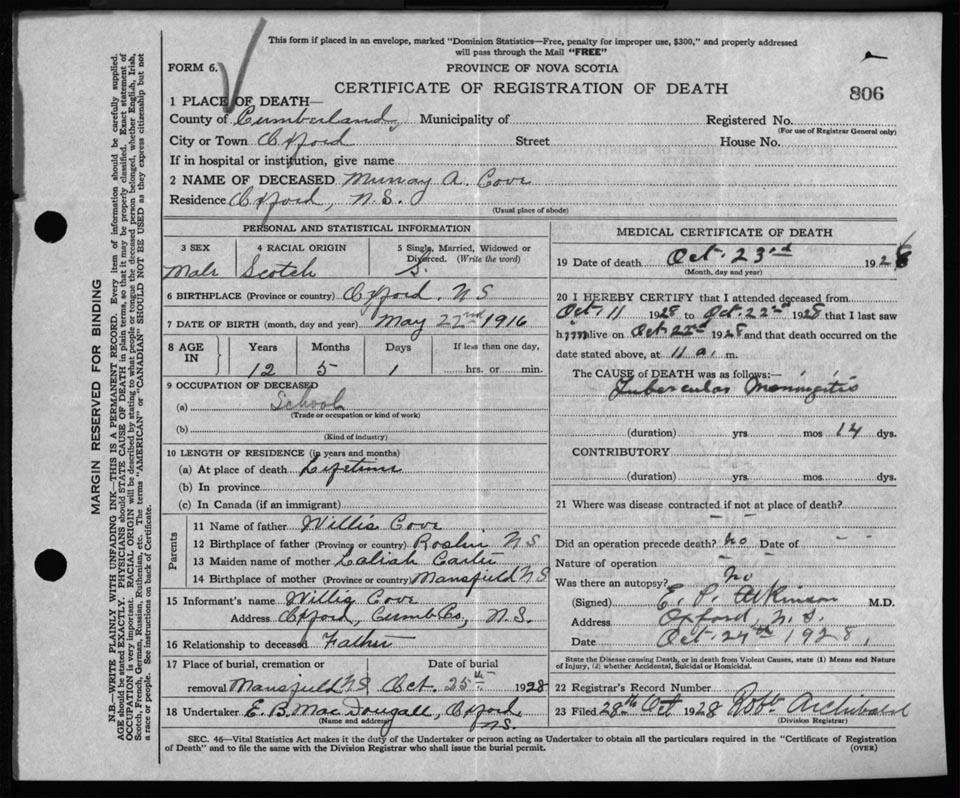 This form if placed in an envelope, marked "Dominion Statistics—Free, penalty for improper use, $300," and properly addressed
will pass through the Mail "FREE"
FORM 6. PROVINCE OF NOVA SCOTIA
CERTIFICATE OF REGISTRATION OF DEATH 806
1 PLACE OF DEATH—
County of Cumberland, Municipality of Registered No.
(For use of Registrar General only)
City or Town Oxford Street House No.
If in hospital or institution, give name
2 NAME OF DECEASED Murray A. Cove
Residence Oxford, N.S.
(Usual place of abode)
PERSONAL AND STATISTICAL INFORMATION
3 SEX 4 RACIAL ORIGIN 5 Single, Married, Widowed or
Divorced. (Write the word)
Male Scotch S.
6 BIRTHPLACE (Province or country) Oxford. N S
7 DATE OF BIRTH (month, day and year) May 22nd 1916
8 AGE IN Years Months Days If less than one day,
12 5 1 hrs. or min.
9 OCCUPATION OF DECEASED
(a) School
(Trade or occupation or kind of work)
(b)
(Kind of industry)
10 LENGTH OF RESIDENCE (in years and months)
(a) At place of death Lifetime
(b) In province
(c) In Canada (if an immigrant)
Parents
11 Name of father Willis Cove
12 Birthplace of father (Province or country) Roslin N S
13 Maiden name of mother Carter
14 Birthplace of mother (Province or country) Mansfield N S
15 Informant's name Willis Cove
Address Oxford, Cumb Co, N.S.
16 Relationship to deceased Father
17 Place of burial, cremation or Date of burial
removal Mansfield N S Oct. 25th 1928
18 Undertaker E. B. MacDougall, Oxford
(Name and address) N.S.
MEDICAL CERTIFICATE OF DEATH
19 Date of death Oct. 23rd 1928
(Month, day and year)
20 I HEREBY CERTIFY that I attended deceased from
Oct. 11 1928 to Oct. 22nd 1928 that I last saw
him alive on Oct 22nd 1928 and that death occurred on the
date stated above, at 11 a. m.
The CAUSE of DEATH was as follows:—
Tubercular Meningitis
(duration) yrs mos 14 dys.
CONTRIBUTORY
(duration) yrs. mos dys.
21 Where was disease contracted if not at place of death?
Did an operation precede death? no Date of
Nature of operation
Was there an autopsy? no
(Signed) E. P. Atkinson M.D.
Address Oxford, N.S.
Date Oct. 24th 1928.
State the Disease causing Death, or in death from Violent Causes, state (1) Means and Nature
of Injury, (2) whether Accidental, Suicidal or Homicidal.
22 Registrar's Record Number
23 Filed 28th Oct 1928 Robt Archibald
(Division Registrar)
SEC. 46—Vital Statistics Act makes it the duty of the Undertaker or person acting as Undertaker to obtain all the particulars required in the "Certificate of Registration
of Death" and to file the same with the Division Registrar who shall issue the burial permit. (OVER)
MARGIN RESERVED FOR BINDING
N.B.—WRITE PLAINLY WITH UNFADING INK—THIS IS A PERMANENT RECORD. Every item of information should be carefully supplied.
AGE should be stated EXACTLY. PHYSICIANS should STATE CAUSE OF DEATH in plain terms, so that it may be properly classified. Exact statement of
OCCUPATION is very important. RACIAL ORIGIN will be described by stating to what people or tongue the deceased person belonged, whether English, Irish,
Scotch, French, German, Russian, Ruthenian, etc. The terms "AMERICAN" or "CANADIAN" SHOULD NOT BE USED as they express citizenship but not
a race or people. See instructions on back of Certificate.